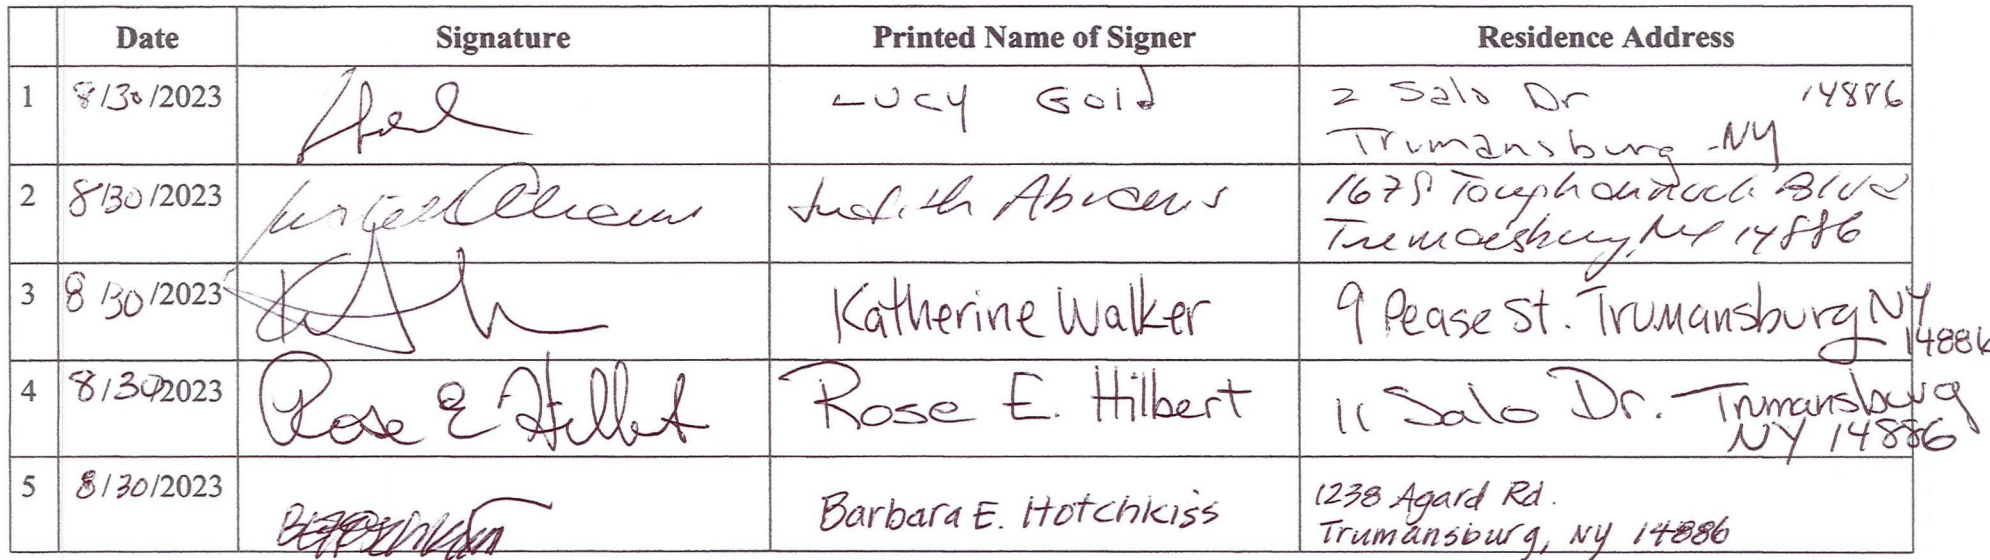 Date Signature Printed Name of Signer Residence Address
1 8/30/2023 Lucy Gold 2 Salo Dr 14886
Trumansburg NY
2 8/30/2023 Judith Abrams 1678 Taughannock Blvd
Trumansburg, NY 14886
3 8/30/2023 Katherine Walker 9 Pease St. Trumansburg NY
14886
4 8/30/2023 Rose E Hilbert Rose E. Hilbert 11 Salo Dr. Trumansburg
NY 14886
5 8/30/2023 Barbara E. Hotchkiss 1238 Agard Rd.
Trumansburg, NY 14886